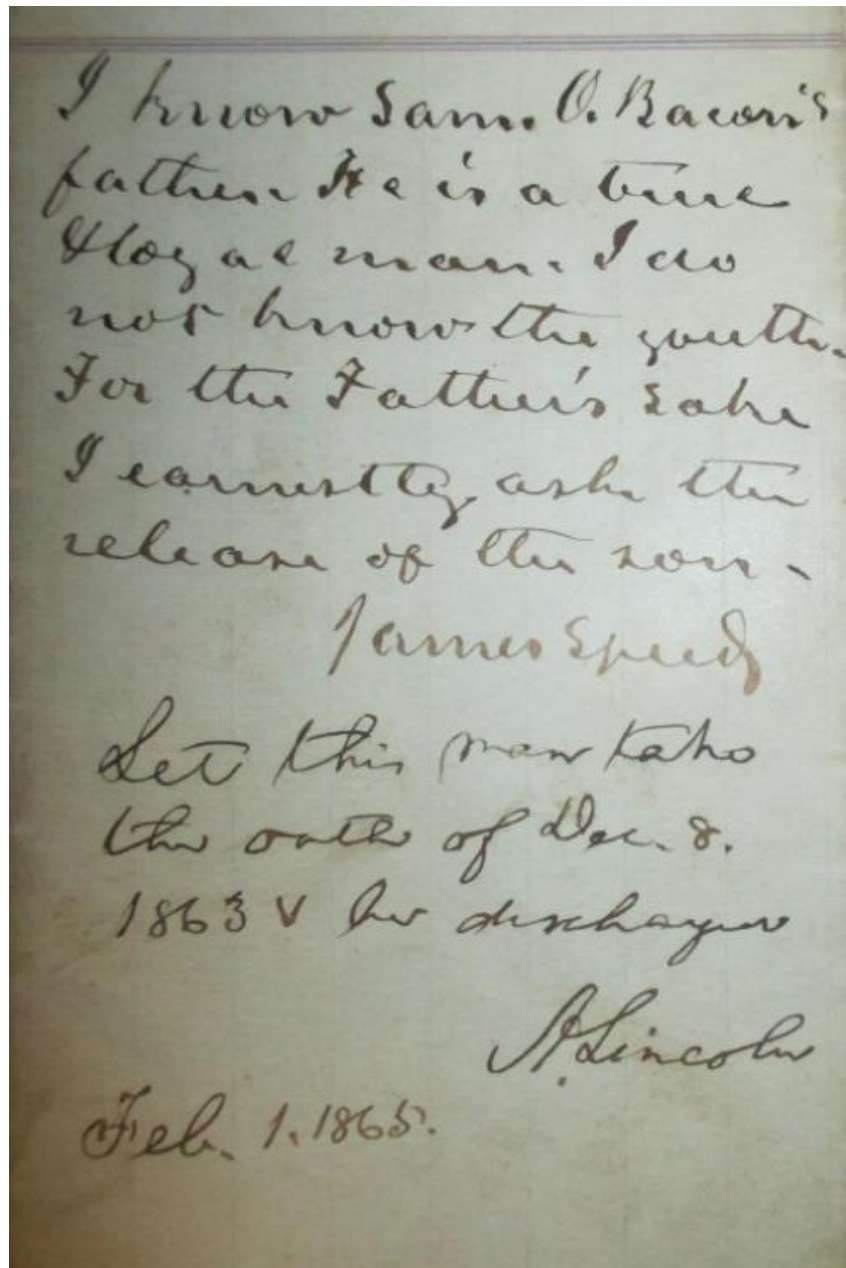 I know Sam. O. Bacon's
father. He is a true
& loyal man. I do
not know the youth.
For the Father's sake
I earnestly ask the
release of the son -
James Speed
Let this man take
the oath of Dec. 8.
1863 & be discharged
A. Lincoln
Feb. 1. 1865.